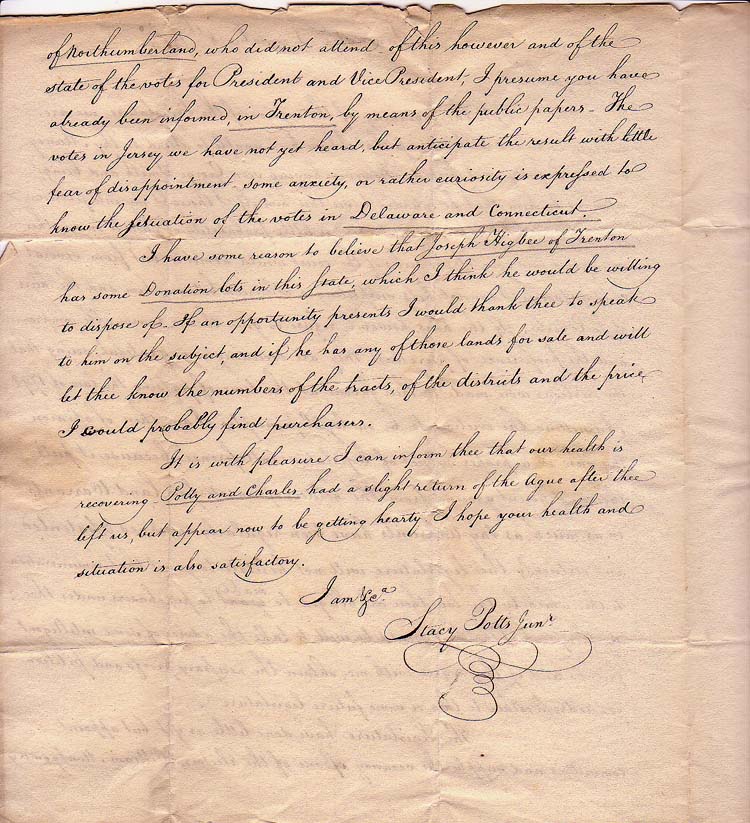 of Northumberland, who did not attend of this however and of the
state of the votes for President and Vice President, I presume you have
already been informed, in Trenton, by means of the public papers - The
votes in Jersey we have not yet heard, but anticipate the result with little
fear of disappointment - some anxiety, or rather curiosity is expressed to
know the situation of the votes in Delaware and Connecticut.
I have some reason to believe that Joseph Higbee of Trenton
has some Donation lots in this State, which I think he would be willing
to dispose of - If an opportunity presents I would thank thee to speak
to him on the subject, and if he has any of those lands for sale and will
let thee know the numbers of the tracts, of the districts and the price
I could probably find purchasers.
It is with pleasure I can inform thee that our health is
recovering - Polly and Charles had a slight return of the Ague after thee
left us, but appear now to be getting hearty I hope your health and
situation is also satisfactory.
I am &c.a
Stacy Potts Junr.